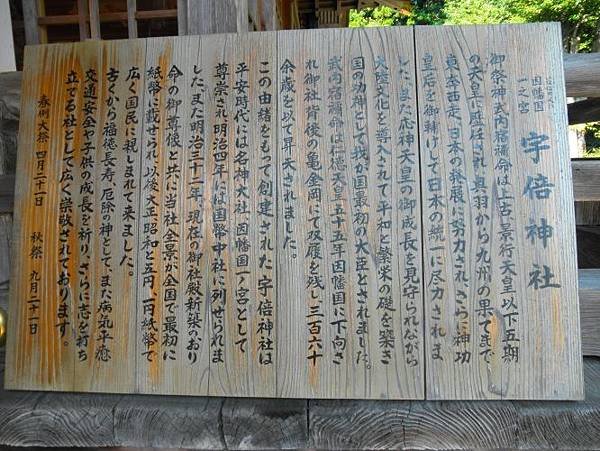 因幡国
一之宮
宇倍神社
御祭神武内宿禰命は上古、景行天皇以下五期
の天皇に歴任され、奥羽から九州の果てまで、
東奔西走、日本の発展に努力され、さらに神功
皇后を御輔けして日本の統一に尽力されま
した。また応神天皇の御成長を見守られながら
大陸文化を導入されて平和と繁栄の礎を築き
国の功神として我が国最初の大臣とされました。
武内宿禰命は仁徳天皇五十五年因幡国に下向さ
れ御社背後の亀金岡にて双履を残し三百六十
余歳を以て昇天されました。
この由緒をもって創建された宇倍神社は
平安時代には名神大社、因幡国一ノ宮として
尊崇され明治四年には国幣中社に列せられま
した。また明治三十二年、現在の御社殿新築のおり
命の御尊像と共に当社全景が全国で最初に
紙幣に載せられ、以後大正、昭和と五円、一円紙幣で
広く国民に親しまれて来ました。
古くから福徳長寿、厄除の神として、また病気平癒
交通安全や子供の成長を祈り、さらに志を打ち
立てる社として広く崇敬されております。
春例大祭 四月二十一日 秋祭 九月二十一日